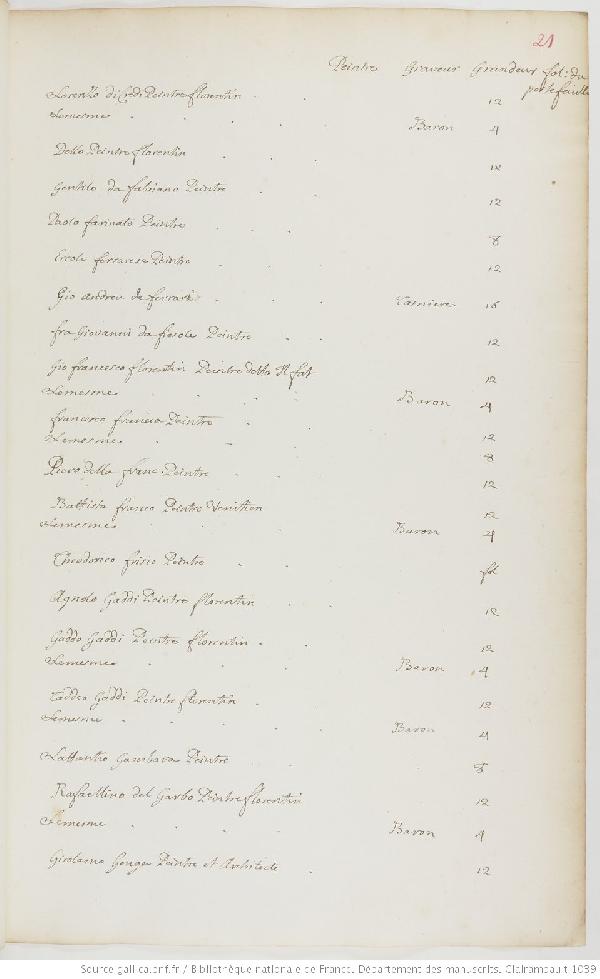 21
Peintre Graveur Grandeur fol: du
portefeuille
Lorenzo di Credi Peintre florentin 12
Lemesme Baron 4
Dello Peintre florentin 12
Gentile da fabriano Peintre 12
Paolo farinato Peintre 8
Ercole ferrarese Peintre 12
Gio Andrea de ferrari 16
fra Giovanni da fiesole Peintre 12
Gio francesco florentin Peintre 12
Lemesme Baron 4
francesco francia Peintre 12
Lemesme 8
Piero della franc. Peintre 12
Battista franco Peintre Venitien 12
Lemesme Baron 4
Theodorico frisio Peintre fol
Agnolo Gaddi Peintre florentin 12
Gaddo Gaddi Peintre florentin 12
Lemesme Baron 4
Taddeo Gaddi Peintre florentin 12
Lemesme Baron 4
Lattantio Gambara Peintre 8
Rafaellino del Garbo Peintre florentin 12
Lemesme Baron 4
Girolamo Genga Peintre et Architecte 12
Source gallica.bnf.fr / Bibliothèque nationale de France. Département des manuscrits. Clairambault 1039